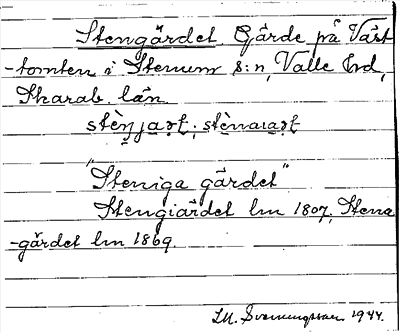 Stengärdet Gärde på Väst
-tomten i Stenum s:n, Valle hd,
Skarab. län.
"Steniga gärdet"
Stengiärdet lm 1807, Stena
-gärdet lm 1869.
Svenningsson 1944.